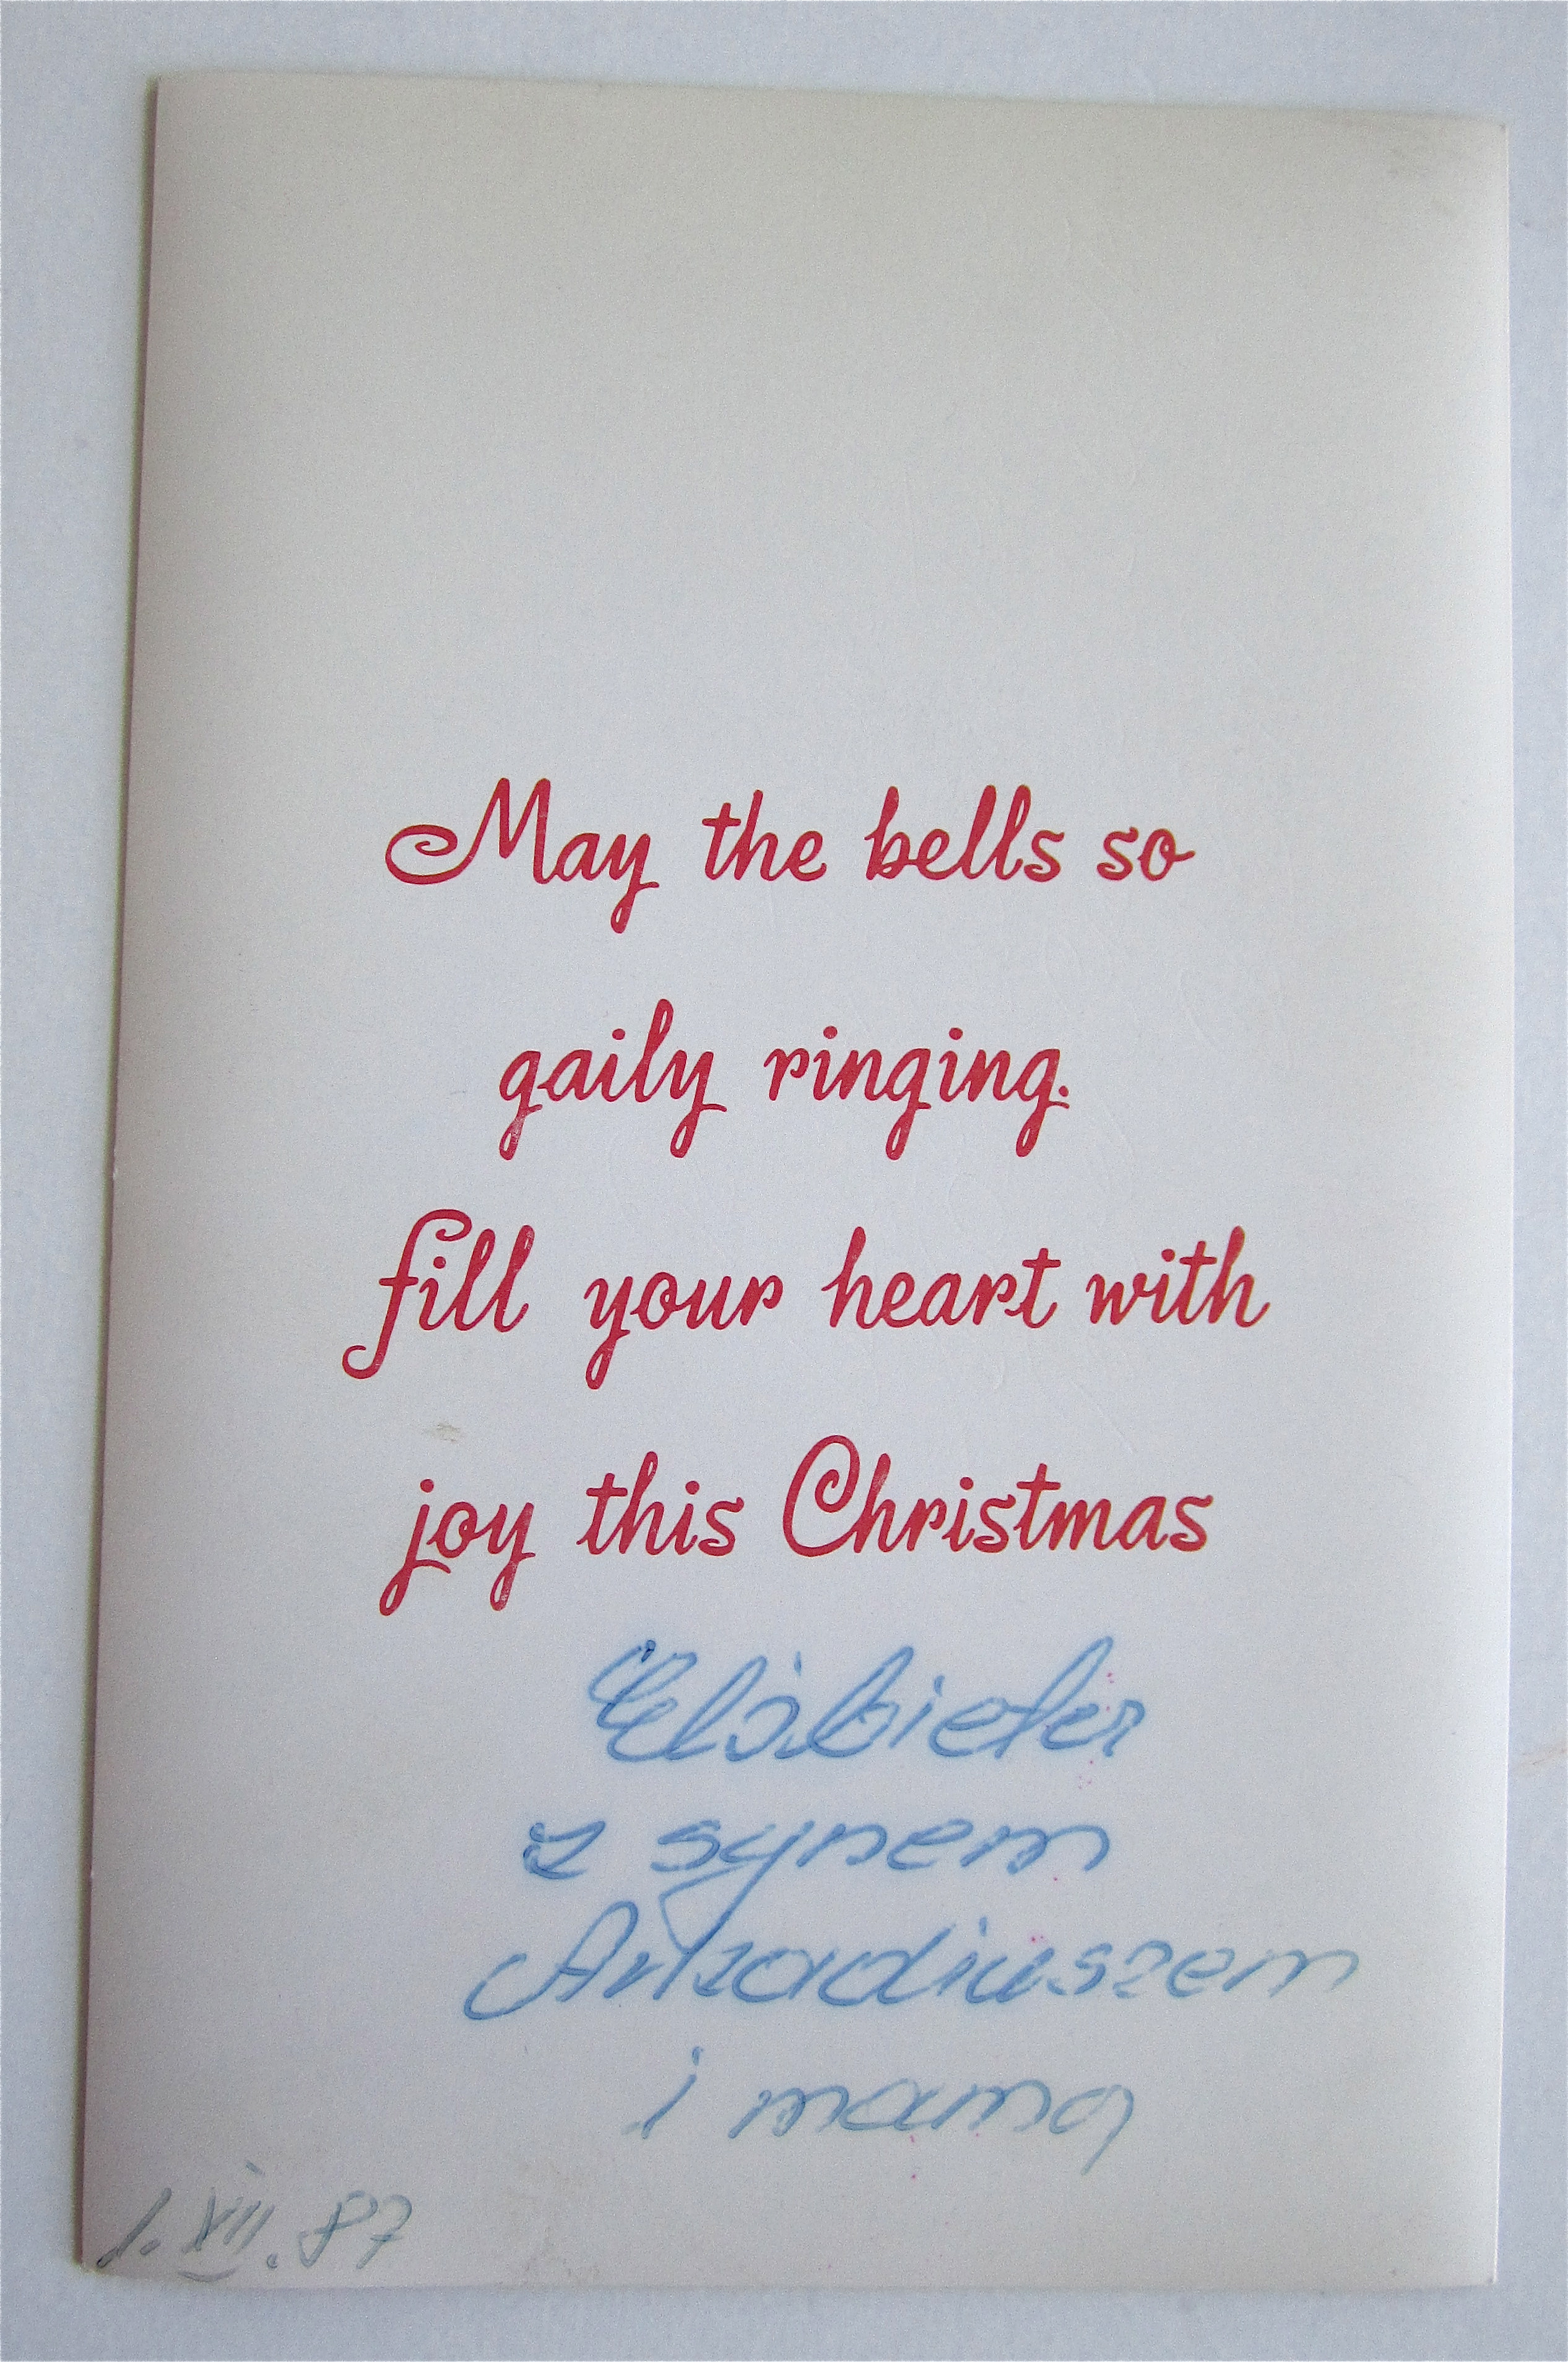 May the bells so
gaily ringing.
fill your heart with
joy this Christmas
Elżbieta
z synem
Arkadiuszem
i mamą
1. XII. 87